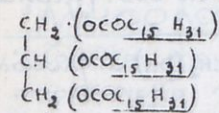 CH₂·(OCOC₁₅H₃₁)
CH (OCOC₁₅H₃₁)
CH₂ (OCOC₁₅H₃₁)